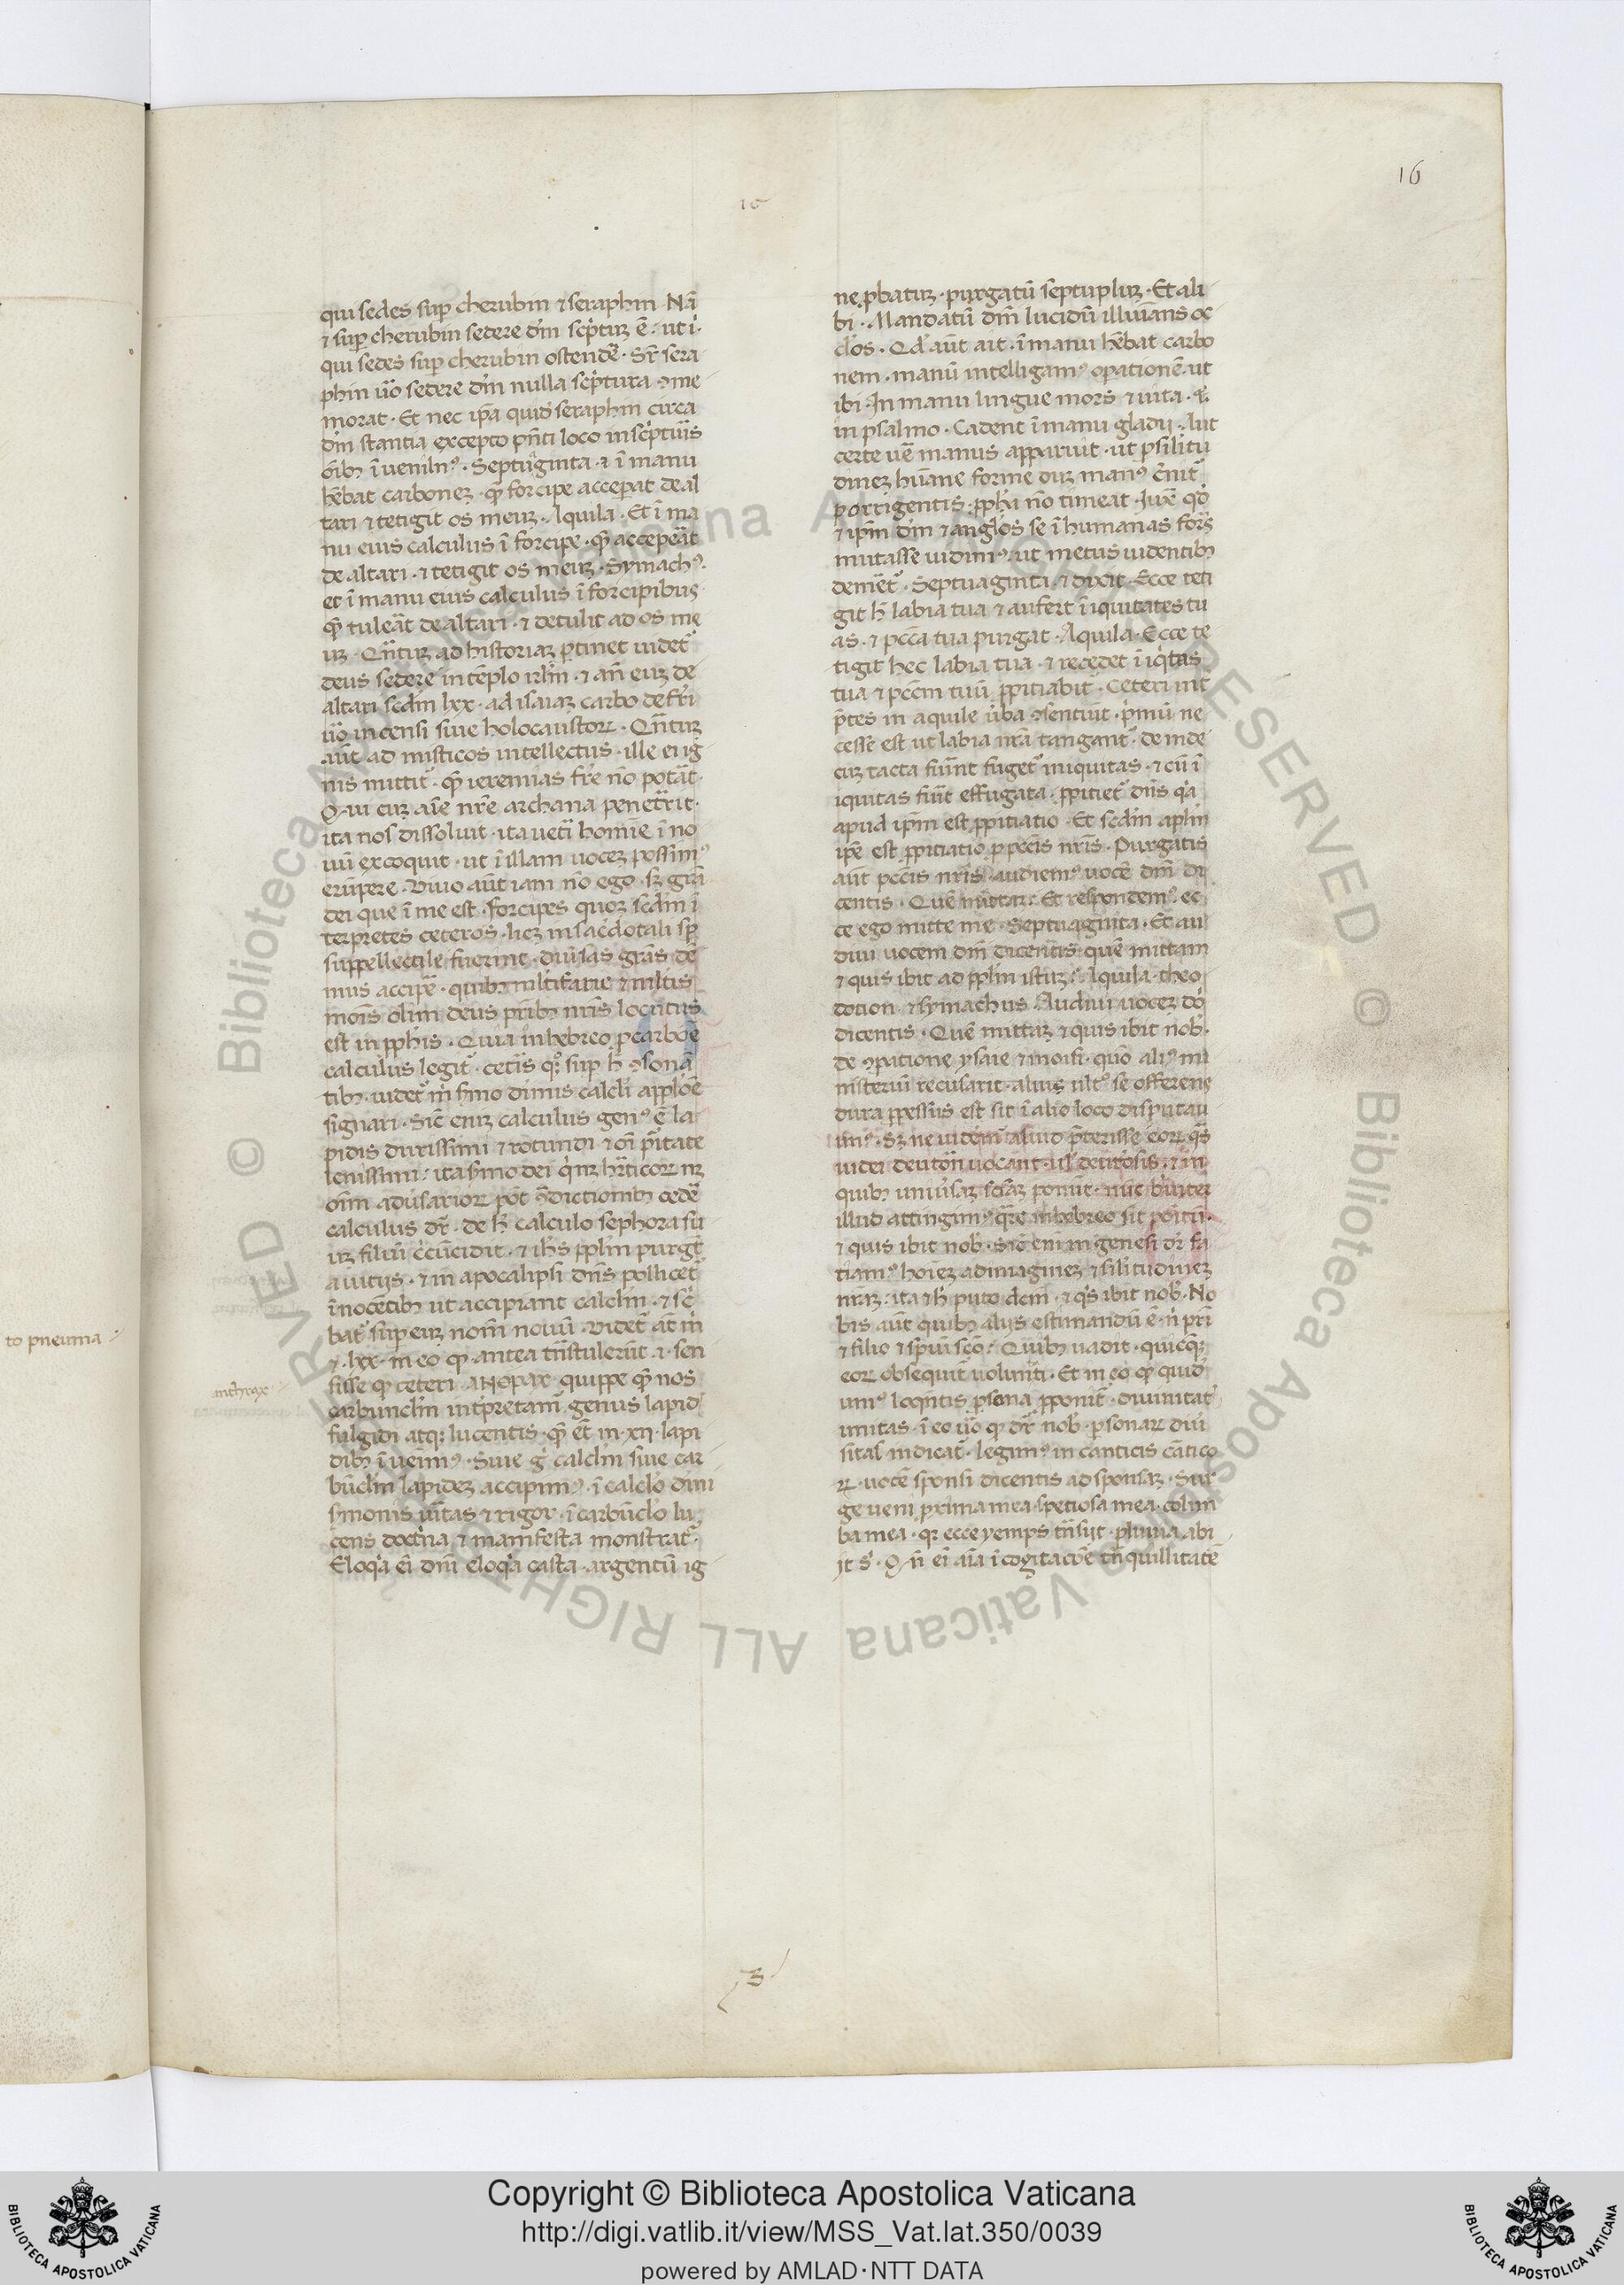 16
16
qui sedes sup̱ cherubin ⁊ seraphin. Nā
⁊ sup̱ cherubin sedere dn̄m sc̄ptuꝫ ē. ut i.
qui sedes sup̱ cherubin ostendē. Sr̄ sera
phin ūo sedere dn̄m nulla sc̄ptura ↄme
morat. Et nec ip̄a quid seraphin circa
dn̄m stantia excepto p̄nti loco in sc̄pturis
oīb; īuenimꝰ. Septuaginta. ⁊ ī manu
hēbat carboneꝫ. qē forcipe acceperat de al
tari ⁊ tetigit os meuꝫ. Aquila. Et ī ma
nu eius calculus ī forcipe. qē accepāt
de altari. ⁊ tetigit os meuꝫ. Symachꝰ.
et ī manu eius calculus ī forcipibus.
qē tuleāt de altari. ⁊ detulit ad os me
uꝫ. Qn̄tuꝫ ad historiaꝫ p̱tinet uidet᷑
deus sedere in tēplo irl̄m. ⁊ an̄ euꝫ de
altari scd̄m lxx. ad isaiaꝫ carbo deferri
ūo incensi siue holocaustoꝝ. Qn̄tuꝫ
aūt ad misticos intellectus. ille ei ig
nis mittit᷑. qē ieremias fr̄e nō potāt.
Qui cuꝫ aīe nr̄e archana penetrarit.
ita nos dissoluit. ita uet̄i homie ī no
uū excoquit. ut ī illam uoceꝫ possimꝰ
erūpere. Viuo aūt iam nō ego. sꝫ grā
dei que ī me est. forcipes quoꝫ scd̄m ī
terpretes ceteros. licꝫ in sac̄dotali sp̄
suppellectile fuerint. diūsas grās de
mus accipē. quib; mltifarie ⁊ mltis
moīs olim deus prīb; nr̄is locutus
est in ꝓphis. Quia in hebreo ꝓ carbōe
calculus legit᷑. cetīs qꝫ sup̱ h̄ ↄsonā
tib;. uidet᷑ m̄ ẜmo diuiꝰ calcli applōe
signari. Sic̄ eniꝫ calculus genꝰ ē la
pidis durissimi ⁊ rotundi ⁊ oī p̄itate
lenissimi: ita ẜmo dei qui nꝫ hr̄ticoꝝ nꝫ
oīm adūsarioꝝ pōt ↄ̄dictionib; cedē
calculus dr̄. de h̄ calculo sephora su
uꝫ filiū c̄cūcidit. ⁊ ihs ꝓplm purgt̄
a uitijs. ⁊ in apocalipsi dn̄s pollicet᷑
īnocētib; ut accipiant calclm̄. ⁊ sc̄
bat᷑ sup̱ euꝫ nomē nouū. Videt᷑ āt m̄
⁊ lxx. in eo qꝫ antea tn̄stulerūt ⁊ sen
sisse qꝫ ceteri. ΑΝΘΡΑΞ quippe qē nos
carbunclm̄ intp̄retam̄ genus lapid᷑
fulgidi atqꝫ lucentis. qē ēt in. xij. lapi
dib; īueimꝰ. Siue g̊ calclm̄ siue car
būclm̄ lapideꝫ accipimꝰ. ī calclo diui
ẜmonis ūitas ⁊ rigor. ī carbūclo lu
cens doctīa ⁊ manifesta monstrat᷑.
Eloqͣ ei dn̄i eloqͣ casta. argentū ig
ne ꝓbatuꝫ. purgatū septupluꝫ. Et ali
bi. Mandatū dn̄i lucidū illuīans oc
clos. Qd᷑ aūt ait. ī manu hēbat carbo
nem. manū intelligamꝰ oꝑationē. ut
ibi. In manu lingue mors ⁊ uita. ⁊.
in psalmo. Cadent ī manu gladij. Aut
certe uē manus apparuit. ut ꝑ silitu
dineꝫ hūane forme duꝫ manꝰ c̄nit᷑
porrigentis: ꝓpħa nō timeat. Iuxͣ qd᷑
⁊ ip̄m dn̄m ⁊ angl̄os se ī humanas form̄s
mutasse uidimꝰ. ut metus uidentib;
demet᷑. Septuaginta. ⁊ dixit. Ecce teti
git h̄ labia tua ⁊ aufert īiquitates tu
as. ⁊ pcc̄a tua purgat. Aquila. Ecce te
tigit hec labia tua. ⁊ recedet īiqͥtas
tua ⁊ pcc̄m tuū ꝓpitiabit᷑. Ceteri int
p̄tes in aquile ūba ↄsentiūt. p̄mū ne
cesse est ut labia nr̄a tangant᷑. deinde
cuꝫ tacta fuint fuget᷑ iniquitas. ⁊ cū ī
iquitas fuīt effugata. ꝓpitiet᷑ dn̄s qͣ
apud ip̄m est ꝓpitiatio. Et scd̄m aplm̄
ip̄e est ꝓpitiatio ꝓ pcc̄is nr̄is. Purgatis
aūt pcc̄is nr̄is audiemꝰ uocē dn̄i di
centis. Quē mittaꝫ. Et respondemꝰ. ec
ce ego mitte me. Septuaginta. Et au
diui uocem dn̄i dicentis: quē mittam
⁊ quis ibit ad ꝓplm istuꝫ. Aquila. theo
dotion. ⁊ symachus. Audiui uoceꝫ do
dicentis. Quē mittaꝫ. ⁊ quis ibit nob᷑.
de ↄparatione ysaie ⁊ moisi. quō aliꝰ mi
nisteriū recusarit. alius ult̄ se offerens
dura ꝑpessus est sit ī alio loco disputaui
mꝰ. Sꝫ ne uidem̄ aliud p̄terisse eoꝝ qͣs
iudei deuterōn uocant. ul̄ deutōsis. ⁊ in
quib; uniūsaꝫ sciāꝫ ponūt. nūc breuiter
illud attingimꝰ. qͣre in hebreo sit positū.
⁊ quis ibit nob᷑. Sic̄ eni in genesi dr̄ fa
tiamꝰ hoīeꝫ ad imagineꝫ ⁊ silitudineꝫ
nr̄aꝫ: ita ⁊ h̄ puto dcm̄. ⁊ qͥs ibit nob᷑. No
bis aūt quib; alijs estimandū ē. n̄ pr̄i
⁊ filio ⁊ spui sc̄o. Quib; uadit. quicqͣꝫ
eoꝝ obsequit᷑ uolunt̄i. Et in eo qꝫ quid᷑
unꝰ loqn̄tis ꝑsona ꝓponit᷑. diuinitat᷑
unitas. ī eo ūo qꝫ dr̄ nob᷑. ꝑsonaꝝ diū
sitas indicat᷑. legimꝰ in canticis cātico
ꝝ. uocē sponsi dicentis ad sponsaꝫ. Sur
ge ueni proxima mea. spetiosa mea. colum
ba mea. qꝫ ecce yemps tn̄sijt. pluuia abi
jt s̄. Qn̄ ei aīa ī cogitatiōe tn̄quillitatē
to pneuma
anthrax
3